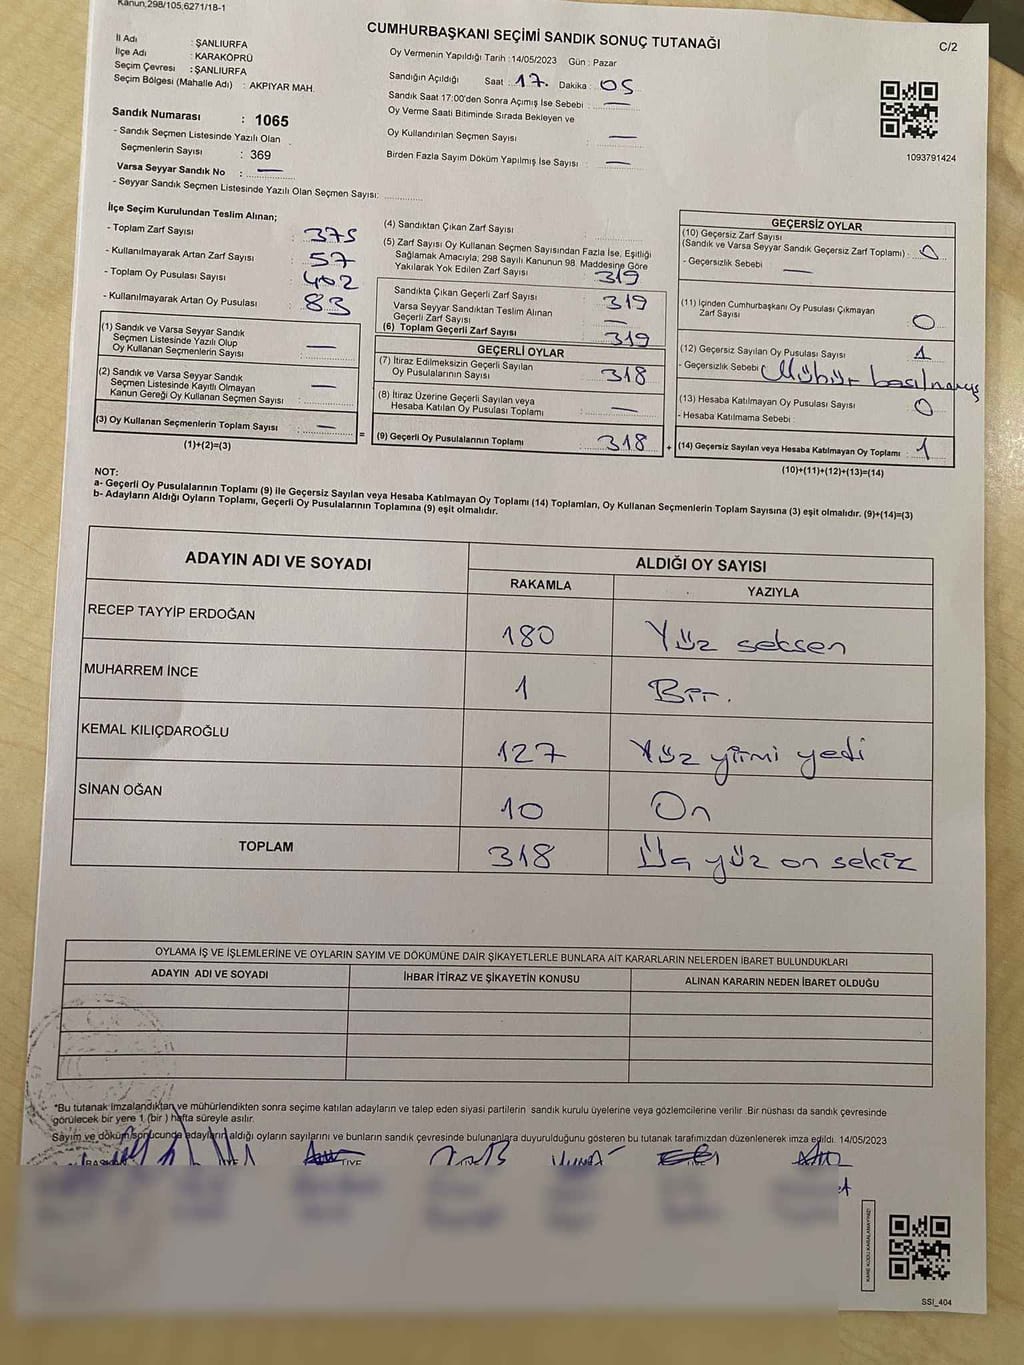 Kanun,298/105,6271/18-1
CUMHURBAŞKANI SEÇİMİ SANDIK SONUÇ TUTANAĞI
C/2
İl Adı : ŞANLIURFA
İlçe Adı : KARAKÖPRÜ
Seçim Çevresi : ŞANLIURFA
Seçim Bölgesi (Mahalle Adı) : AKPIYAR MAH.
Sandık Numarası : 1065
- Sandık Seçmen Listesinde Yazılı Olan
Seçmenlerin Sayısı : 369
Varsa Seyyar Sandık No : —
- Seyyar Sandık Seçmen Listesinde Yazılı Olan Seçmen Sayısı:
Oy Vermenin Yapıldığı Tarih :14/05/2023 Gün : Pazar
Sandığın Açıldığı Saat : 17. Dakika : 05
Sandık Saat 17:00'den Sonra Açımış İse Sebebi : —
Oy Verme Saati Bitiminde Sırada Bekleyen ve
Oy Kullandırılan Seçmen Sayısı : —
Birden Fazla Sayım Döküm Yapılmış İse Sayısı : —
1093791424
İlçe Seçim Kurulundan Teslim Alınan;
- Toplam Zarf Sayısı : 375
- Kullanılmayarak Artan Zarf Sayısı : 57
- Toplam Oy Pusulası Sayısı : 402
- Kullanılmayarak Artan Oy Pusulası : 83
(1) Sandık ve Varsa Seyyar Sandık
Seçmen Listesinde Yazılı Olup
Oy Kullanan Seçmenlerin Sayısı : —
(2) Sandık ve Varsa Seyyar Sandık
Seçmen Listesinde Kayıtlı Olmayan
Kanun Gereği Oy Kullanan Seçmen Sayısı : —
(3) Oy Kullanan Seçmenlerin Toplam Sayısı : —
(1)+(2)=(3)
(4) Sandıktan Çıkan Zarf Sayısı :
(5) Zarf Sayısı Oy Kullanan Seçmen Sayısından Fazla İse, Eşitliği
Sağlamak Amacıyla; 298 Sayılı Kanunun 98. Maddesine Göre
Yakılarak Yok Edilen Zarf Sayısı : 319
Sandıkta Çıkan Geçerli Zarf Sayısı : 319
Varsa Seyyar Sandıktan Teslim Alınan
Geçerli Zarf Sayısı : —
(6) Toplam Geçerli Zarf Sayısı : 319
GEÇERLİ OYLAR
(7) İtiraz Edilmeksizin Geçerli Sayılan
Oy Pusulalarının Sayısı : 318
(8) İtiraz Üzerine Geçerli Sayılan veya
Hesaba Katılan Oy Pusulası Toplamı : —
= (9) Geçerli Oy Pusulalarının Toplamı : 318
GEÇERSİZ OYLAR
(10) Geçersiz Zarf Sayısı
(Sandık ve Varsa Seyyar Sandık Geçersiz Zarf Toplamı) : 0
- Geçersizlik Sebebi : —
(11) İçinden Cumhurbaşkanı Oy Pusulası Çıkmayan
Zarf Sayısı : 0
(12) Geçersiz Sayılan Oy Pusulası Sayısı : 1
- Geçersizlik Sebebi : Mühür basılmamış
(13) Hesaba Katılmayan Oy Pusulası Sayısı : 0
- Hesaba Katılmama Sebebi :
+ (14) Geçersiz Sayılan veya Hesaba Katılmayan Oy Toplamı : 1
(10)+(11)+(12)+(13)=(14)
NOT:
a- Geçerli Oy Pusulalarının Toplamı (9) ile Geçersiz Sayılan veya Hesaba Katılmayan Oy Toplamı (14) Toplamları, Oy Kullanan Seçmenlerin Toplam Sayısına (3) eşit olmalıdır. (9)+(14)=(3)
b- Adayların Aldığı Oyların Toplamı, Geçerli Oy Pusulalarının Toplamına (9) eşit olmalıdır.
ADAYIN ADI VE SOYADI ALDIĞI OY SAYISI
RAKAMLA YAZIYLA
RECEP TAYYİP ERDOĞAN 180 Yüz seksen
MUHARREM İNCE 1 Bir.
KEMAL KILIÇDAROĞLU 127 Yüz yirmi yedi
SİNAN OĞAN 10 On
TOPLAM 318 Üç yüz on sekiz
OYLAMA İŞ VE İŞLEMLERİNE VE OYLARIN SAYIM VE DÖKÜMÜNE DAİR ŞİKAYETLERLE BUNLARA AİT KARARLARIN NELERDEN İBARET BULUNDUKLARI
ADAYIN ADI VE SOYADI İHBAR İTİRAZ VE ŞİKAYETİN KONUSU ALINAN KARARIN NEDEN İBARET OLDUĞU
*Bu tutanak imzalandıktan ve mühürlendikten sonra seçime katılan adayların ve talep eden siyasi partilerin sandık kurulu üyelerine veya gözlemcilerine verilir. Bir nüshası da sandık çevresinde
görülecek bir yere 1 (bir) hafta süreyle asılır.
Sayım ve döküm sonucunda adayların aldığı oyların sayılarını ve bunların sandık çevresinde bulunanlara duyurulduğunu gösteren bu tutanak tarafımızdan düzenlenerek imza edildi. 14/05/2023
BAŞKAN ÜYE ÜYE
KARE KODU KARALAMAYINIZ!
SSI_404